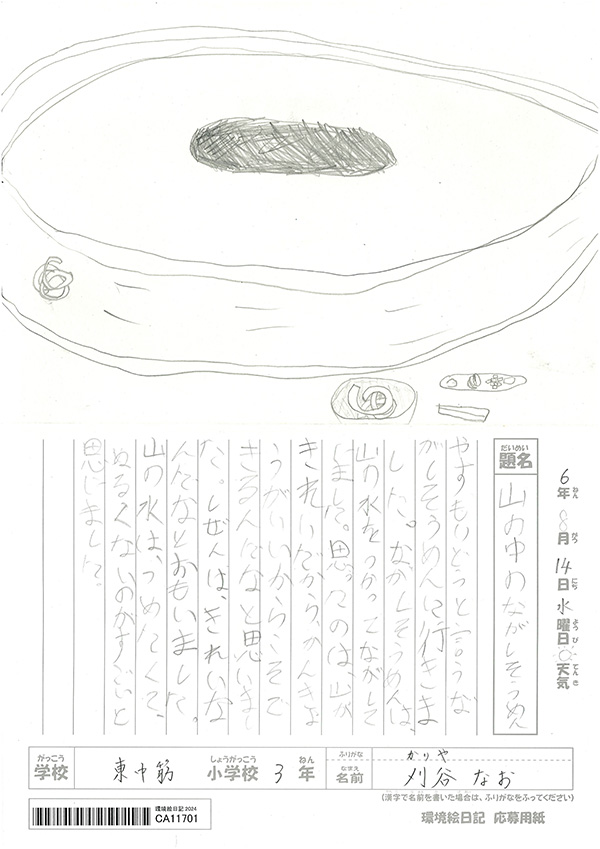 6年8月14日水曜日 天気
ねん がつ にち ようび てんき
だいめい
題名 山の中のながしそうめん
やすもりどっと言うな
がしそうめんに行きま
した。ながしそうめんは、
山の水をつかってながして
いました。思ったのは、山が
きれいだから、かんきょ
うがいいからこそで
きるんだなと思いまし
た。しぜんは、きれいな
んだなとおもいました。
山の水は、つめたくて、
ぬるくないのがすごいと
思いました。
がっこう しょうがっこう ねん
学校 東中筋 小学校 3年
ふりがな かりや
なまえ
名前 刈谷 なお
(漢字で名前を書いた場合は、ふりがなをふってください)
環境絵日記2024
CA11701
環境絵日記 応募用紙